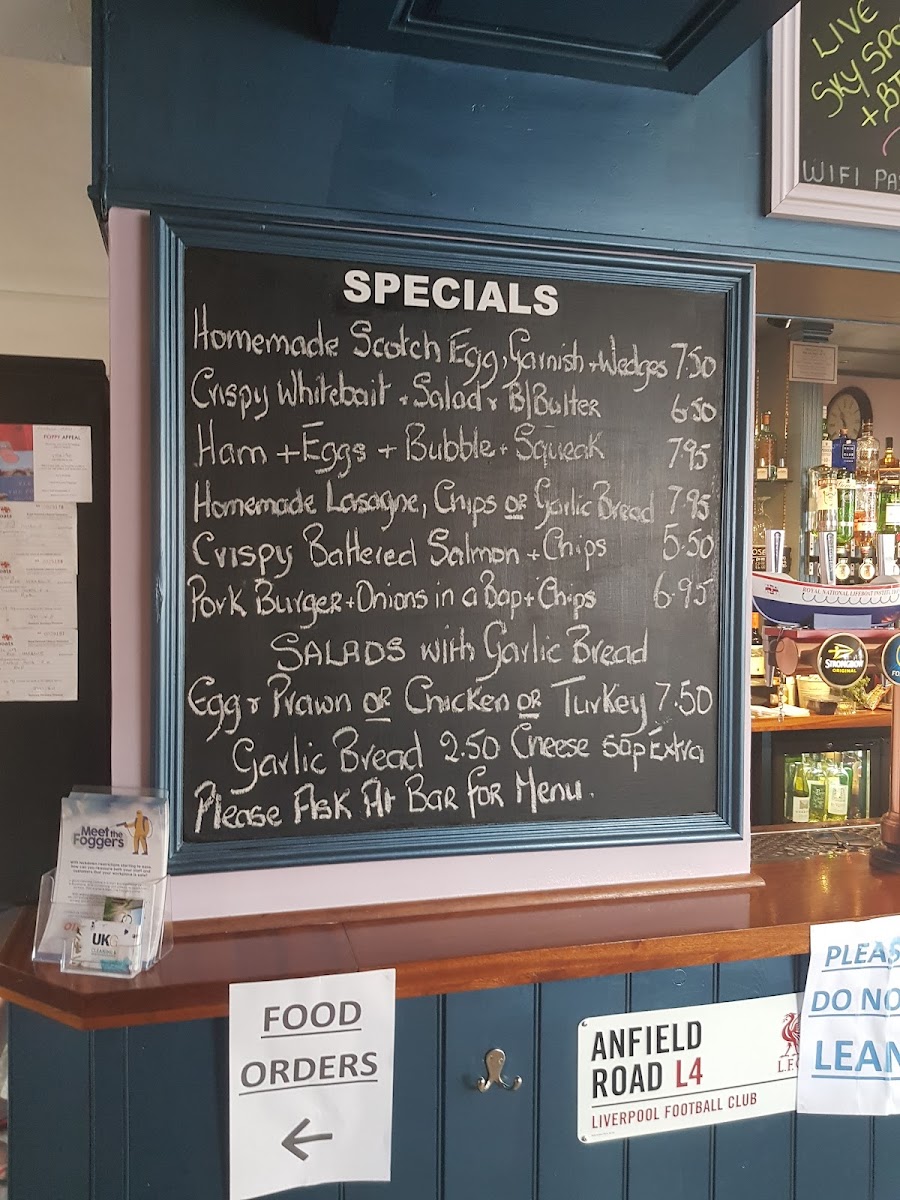 LIVE
SKY SPO
+ BT
WIFI PAS
SPECIALS
Homemade Scotch Egg, Garnish + Wedges 7.50
Crispy Whitebait + Salad + B/Butter 6.50
Ham + Eggs + Bubble + Squeak 7.95
Homemade Lasagne, Chips or Garlic Bread 7.95
Crispy Battered Salmon + Chips 5.50
Pork Burger + Onions in a Bap + Chips 6.95
SALADS with Garlic Bread
Egg + Prawn or Chicken or Turkey 7.50
Garlic Bread 2.50 Cheese 50p Extra
Please Ask At Bar for Menu.
POPPY APPEAL
ROYAL NATIONAL LIFEBOAT INSTIT
STRONGBOW
ORIGINAL
Meet the
Foggers
UK
FOOD
ORDERS
ANFIELD
ROAD L4
LIVERPOOL FOOTBALL CLUB
L.F.C
PLEAS
DO NO
LEAN